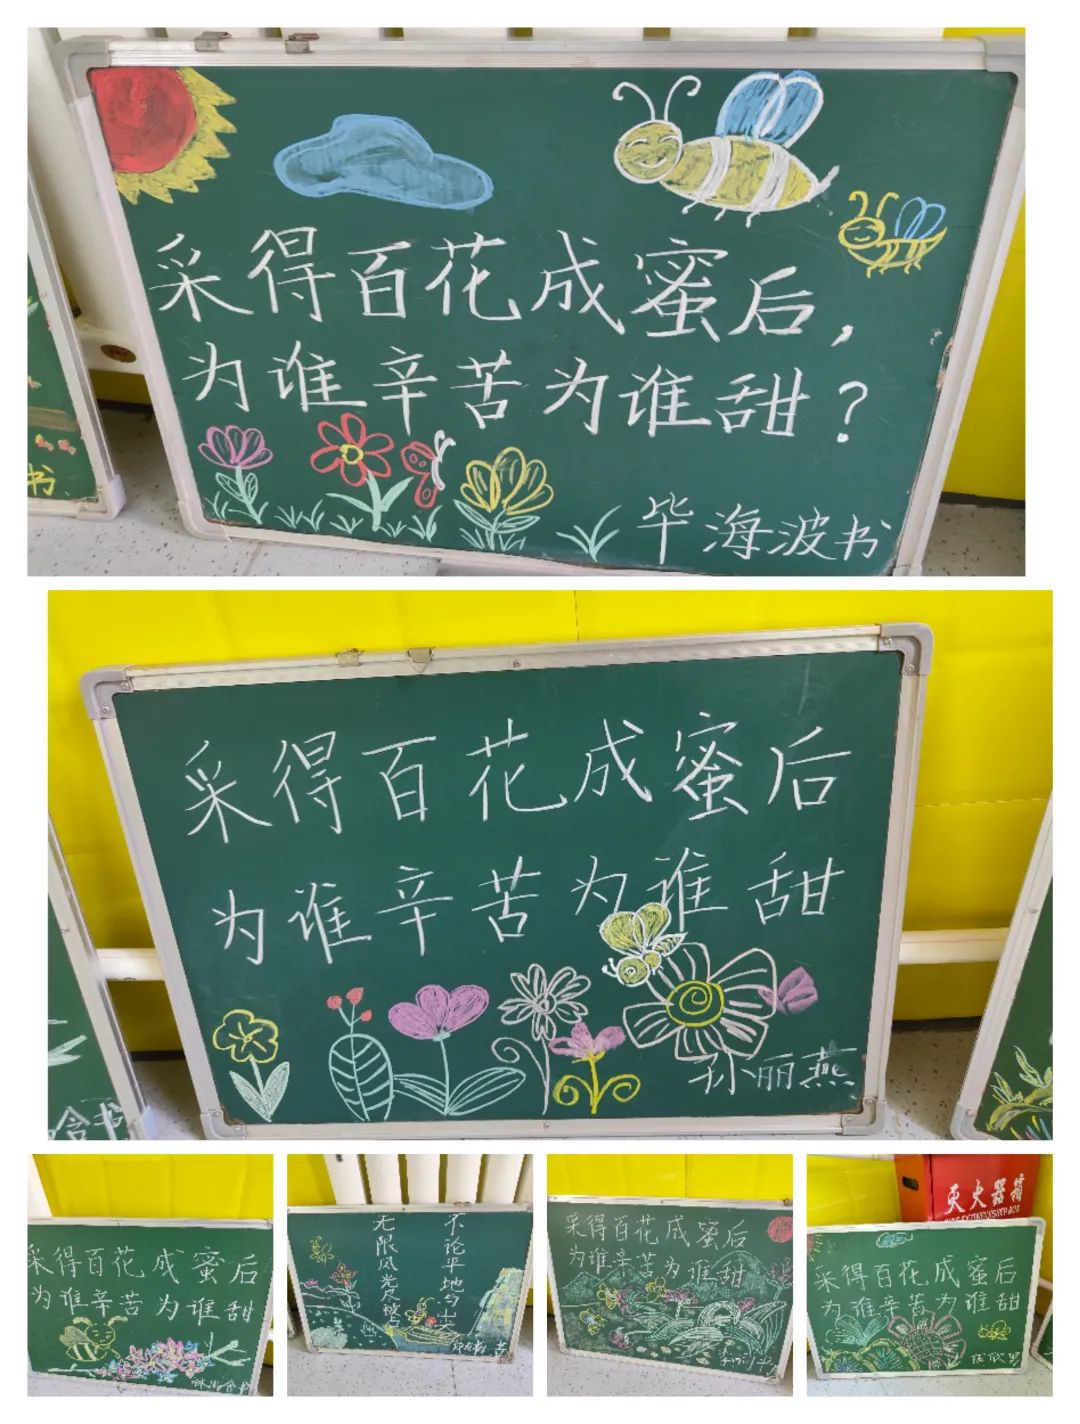 采得百花成蜜后，
为谁辛苦为谁甜？
毕海波书
书
采得百花成蜜后
为谁辛苦为谁甜
孙丽燕
含书
采得百花成蜜后
为谁辛苦为谁甜
不论平地与山
无限风光尽被占
采得百花成蜜后
为谁辛苦为谁甜
灭火器箱
采得百花成蜜后
为谁辛苦为谁甜